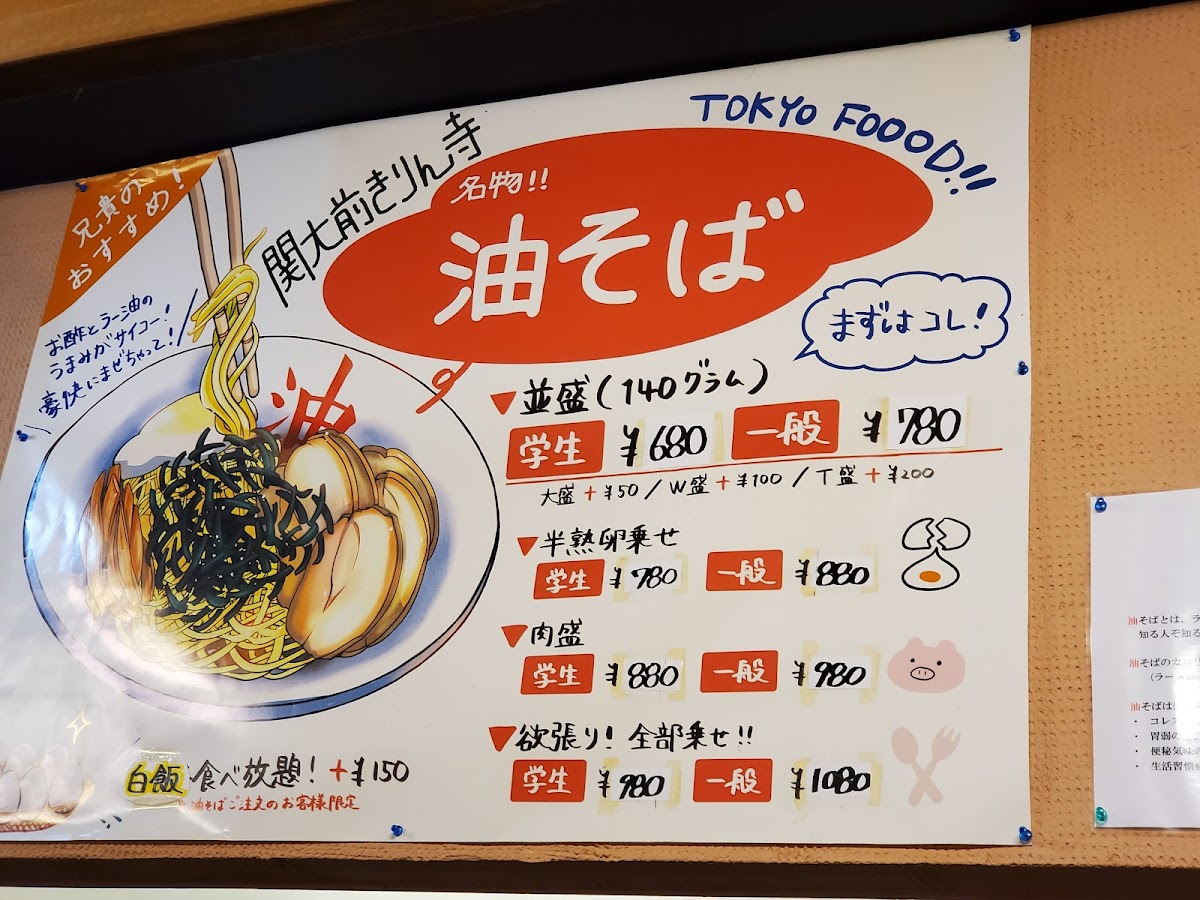 TOKYO FOOOD!!
兄貴の
おすすめ!
関大前きりん寺
名物!!
油そば
お酢とラー油の
うまみがサイコー!
豪快にまぜちゃって!
まずはコレ!
油
▼並盛(140グラム)
学生 ¥680 一般 ¥780
大盛+¥50/W盛+¥100/T盛+¥200
▼半熟卵乗せ
学生 ¥780 一般 ¥880
▼肉盛
学生 ¥880 一般 ¥980
▼欲張り!全部乗せ!!
学生 ¥980 一般 ¥1080
白飯食べ放題!+¥150
※油そばご注文のお客様限定
油そばとは、ラ
知る人ぞ知る
油そばのカロ
(ラー
油そばは
・ コレス
・ 胃弱の
・ 便秘気味の
・ 生活習慣